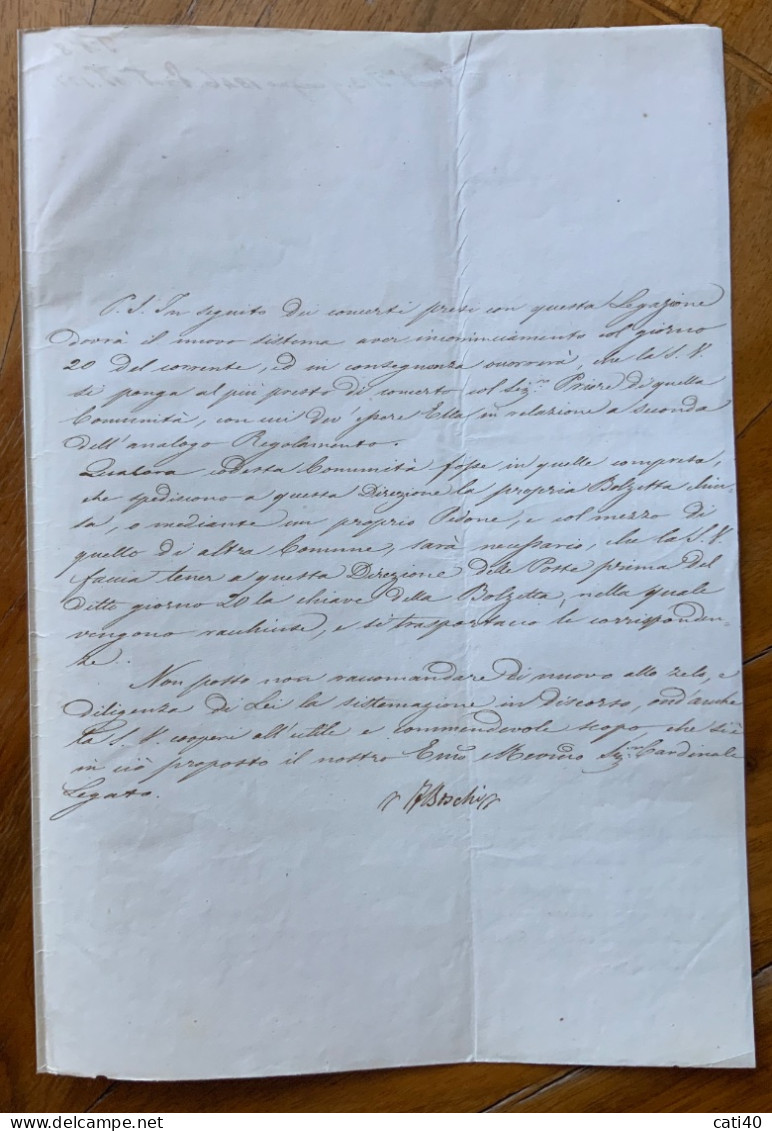 P. S. In seguito dei concerti presi con questa Legazione
dovrà il nuovo sistema aver incominciamento col giorno
20 del corrente, ed in conseguenza occorrerà, che la S. V.
si ponga al più presto di concerto col Sig.r Priore di quella
Comunità, con cui dev'essere Ella in relazione a seconda
dell'analogo Regolamento.
Qualora codesta Comunità fosse in quelle compresa,
che spediscono a questa Direzione la propria Bolzetta chiu-
sa, o mediante un proprio Pedone, e col mezzo di
quello di altra Comune, sarà necessario, che la S. V.
faccia tener a questa Direzione delle Poste prima del
ditto giorno 20 la chiave della Bolzetta, nella quale
vengono racchiuse, e si trasportano le corrisponden-
ze.
Non posso non raccomandare di nuovo allo zelo, e
diligenza di Lei la sistemazione in discorso, ond'anche
la S. V. cooperi all'utile e commendevole scopo che si è
in ciò proposto il nostro Emo Sig.r Cardinale
Legato.
Boschi
cati40